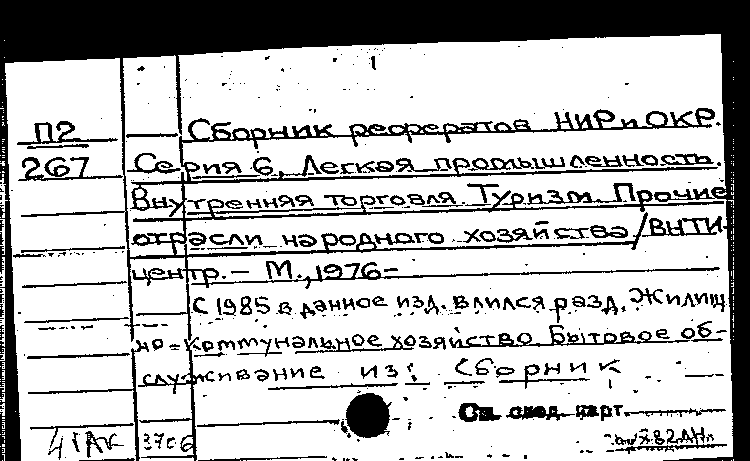 1
П2 Сборник рефератов НИР и ОКР.
267 Серия 6, Легкая промышленность.
Внутренняя торговля. Туризм. Прочие
отрасли народного хозяйства/ВНТИ-
центр. – М., 1976–
С 1985 в данное изд. влился разд. Жилищ
но-коммунальное хозяйство. Бытовое об-
служивание из: Сборник
См. след. карт.